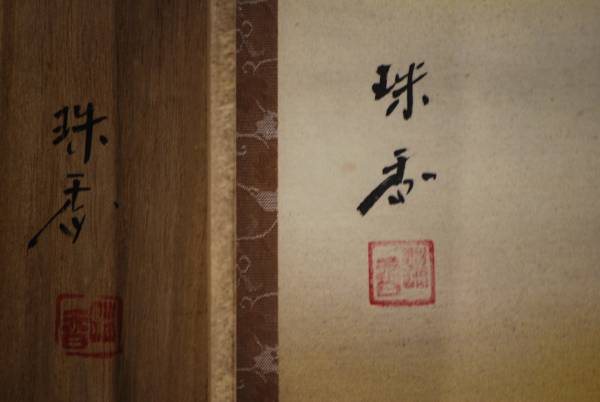 珠香
珠香